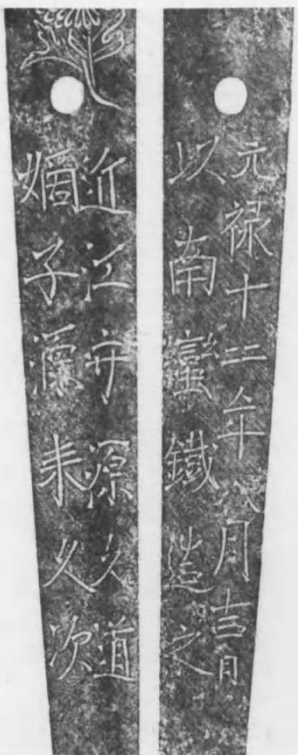 元禄十二年八月吉日
以南蠻鐵造之
近江守源久道
嫡子源来久次